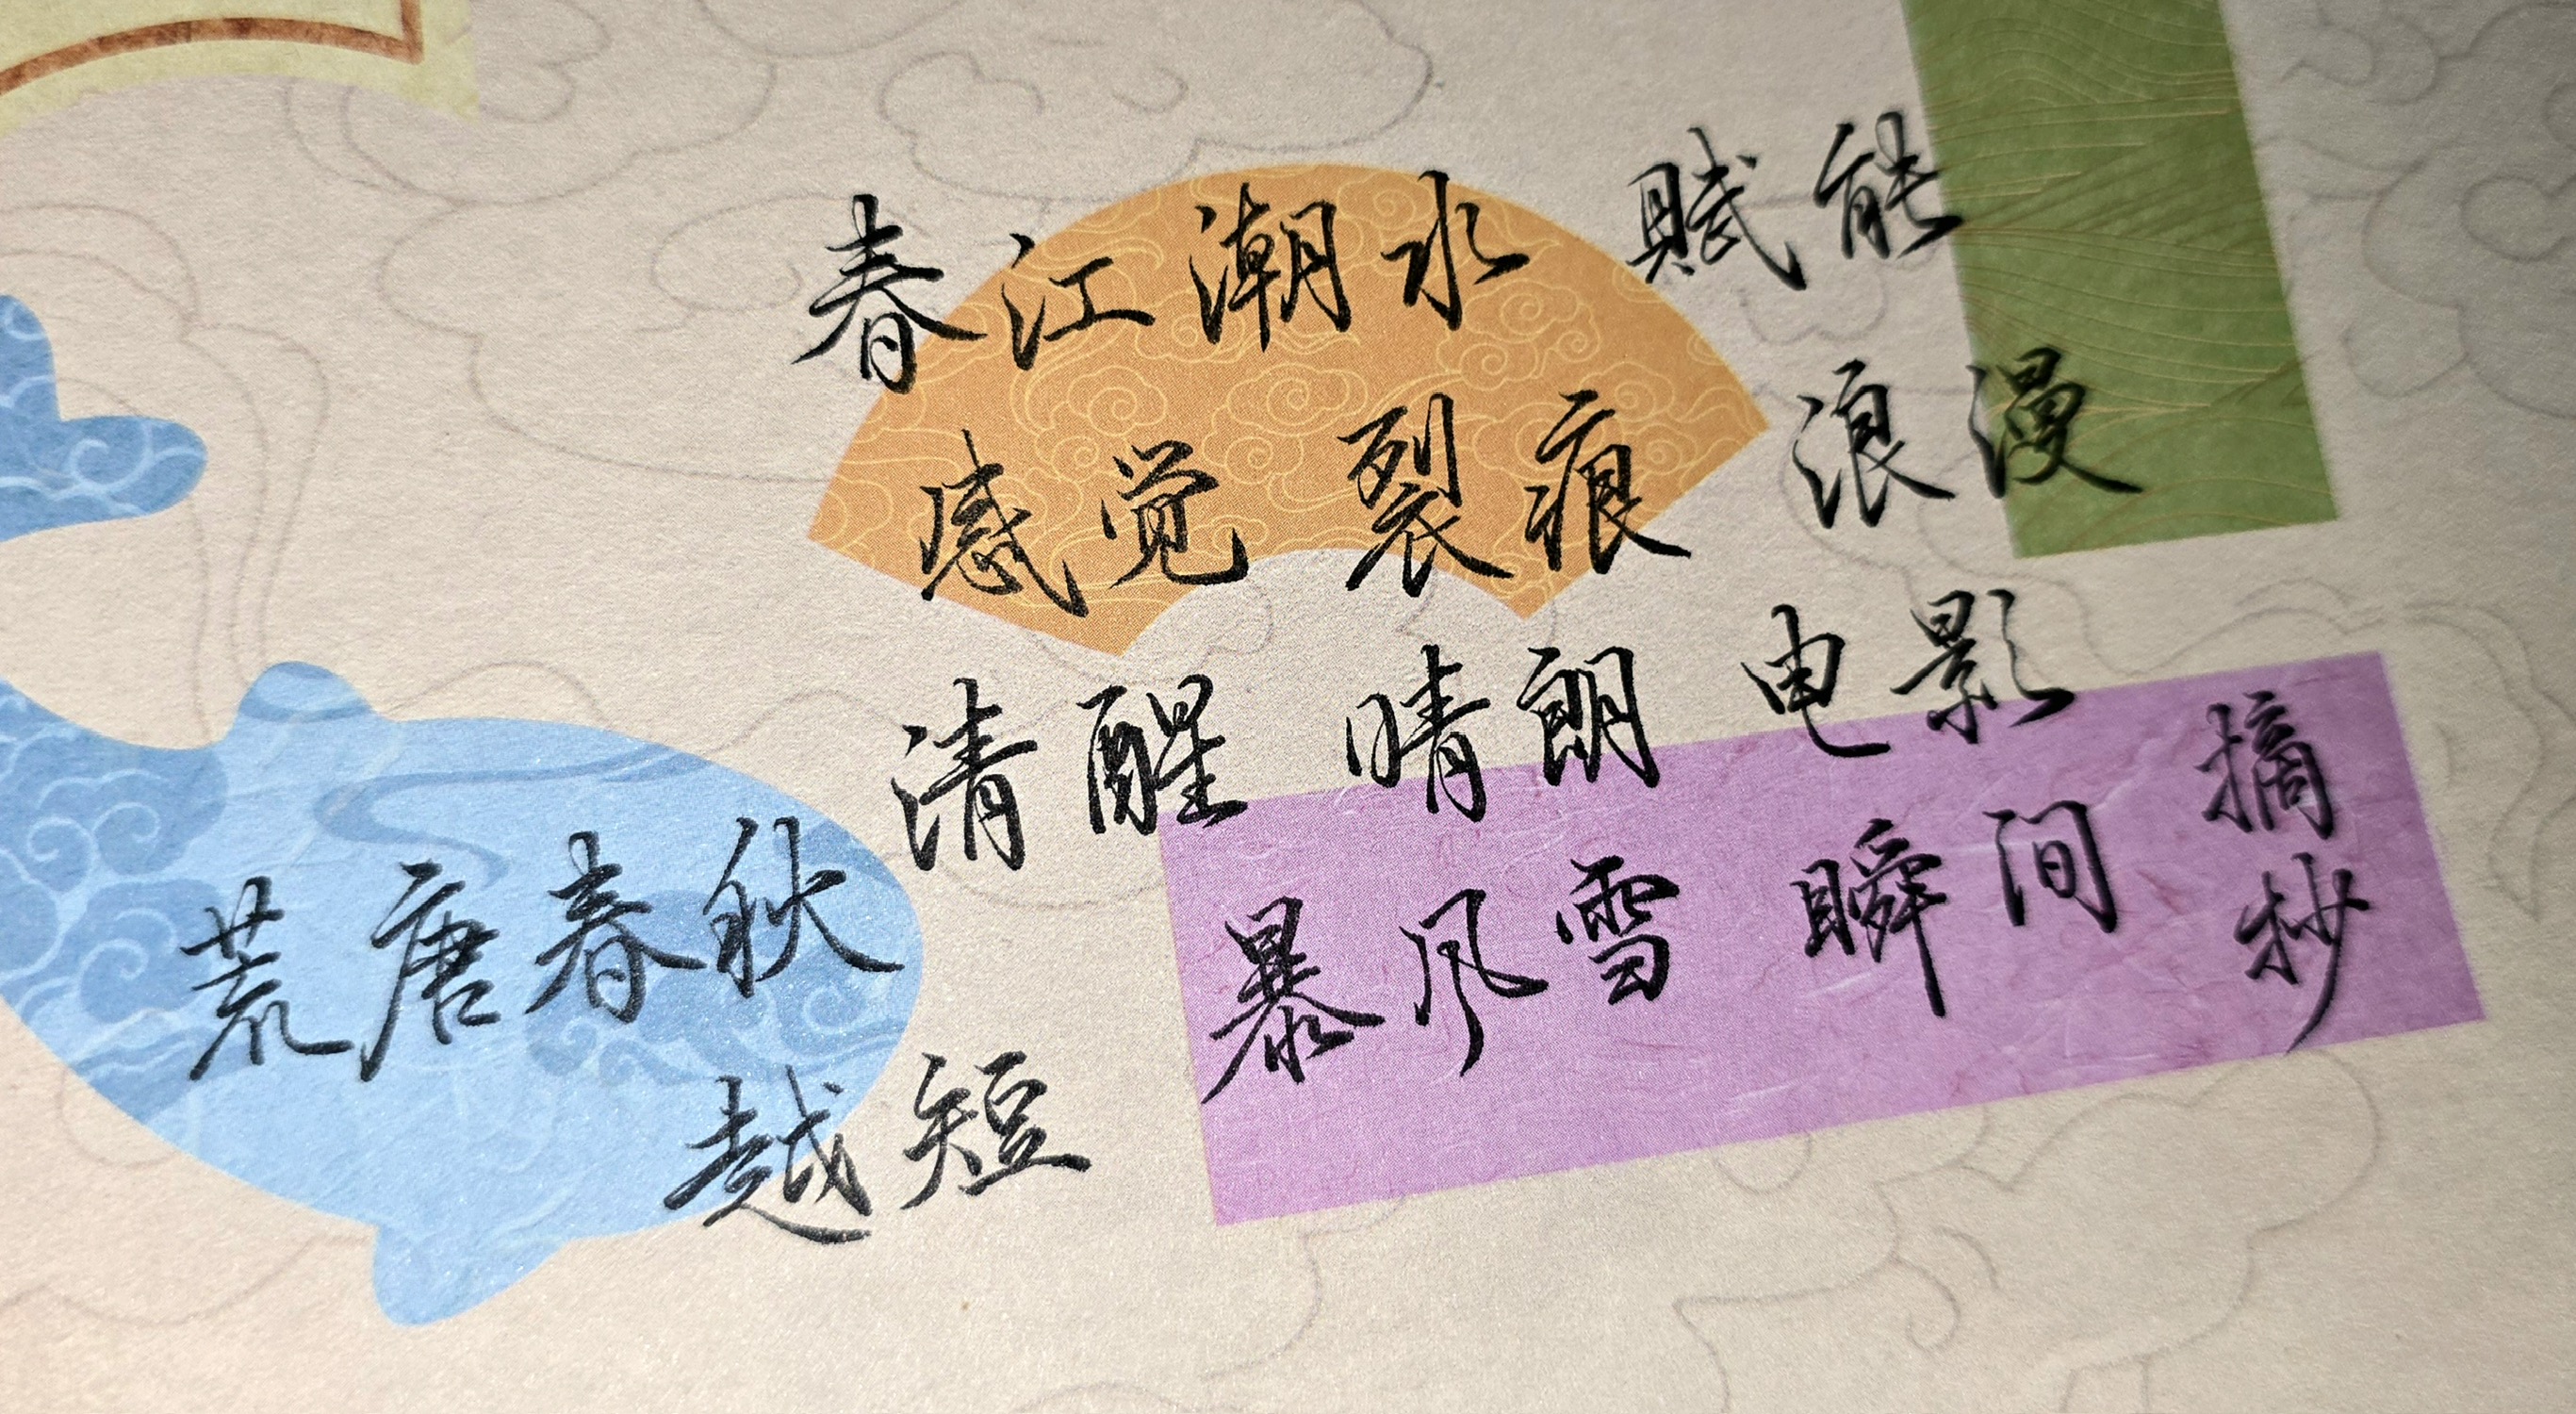 春江潮水 赋能
感觉 裂痕 浪漫
清醒 晴朗 电影
荒唐春秋 暴风雪 瞬间
摘抄
越短